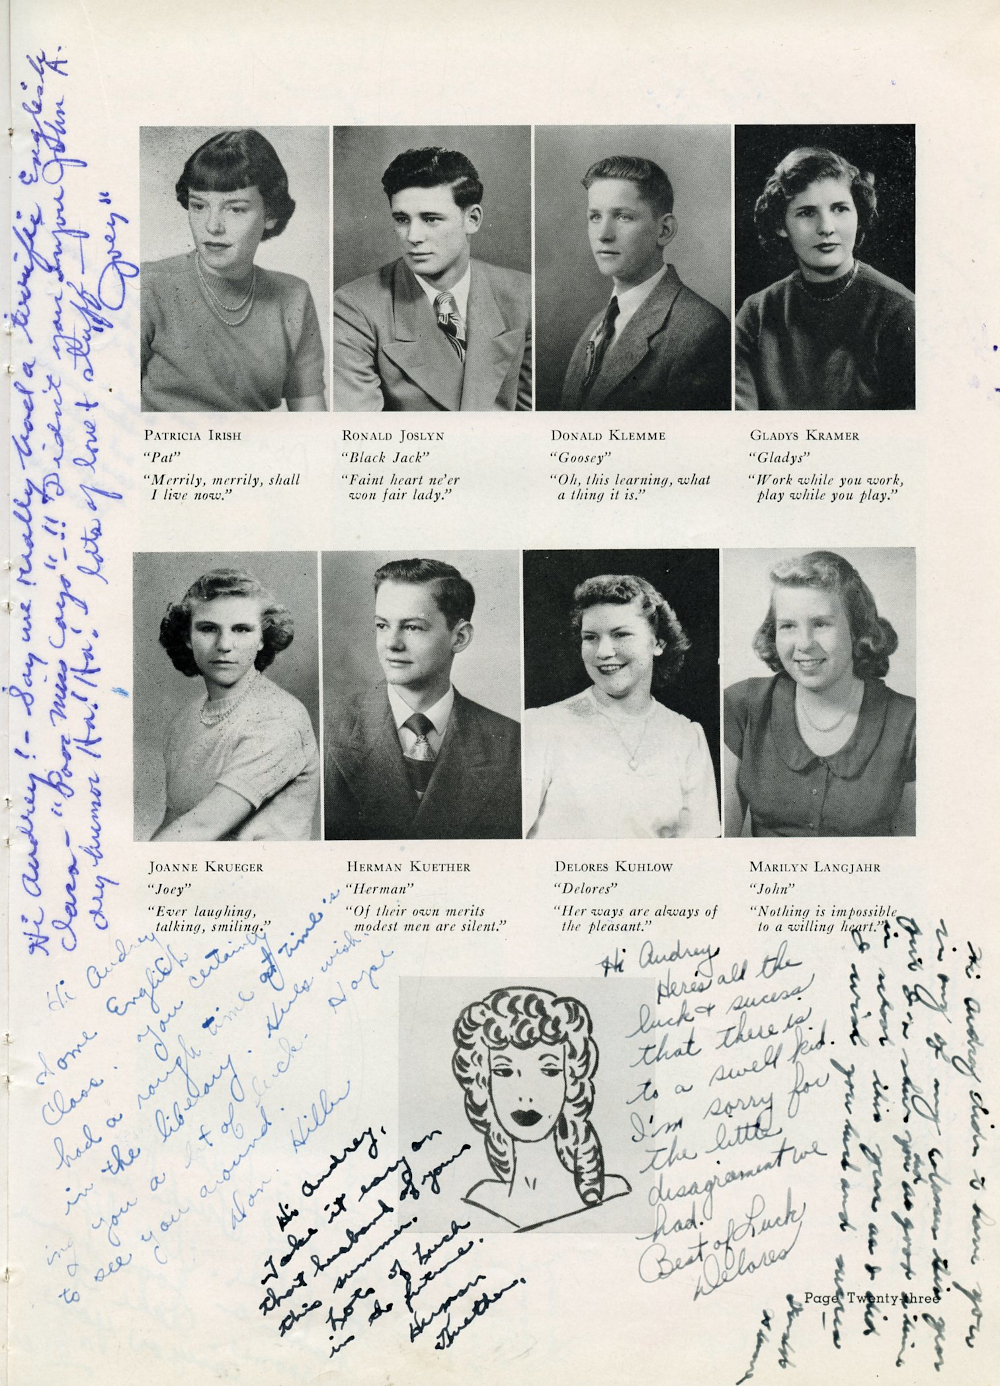 PATRICIA IRISH
"Pat"
"Merrily, merrily, shall
I live now."
RONALD JOSLYN
"Black Jack"
"Faint heart ne'er
won fair lady."
DONALD KLEMME
"Goosey"
"Oh, this learning, what
a thing it is."
GLADYS KRAMER
"Gladys"
"Work while you work,
play while you play."
JOANNE KRUEGER
"Joey"
"Ever laughing,
talking, smiling."
HERMAN KUETHER
"Herman"
"Of their own merits
modest men are silent."
DELORES KUHLOW
"Delores"
"Her ways are always of
the pleasant."
MARILYN LANGJAHR
"John"
"Nothing is impossible
to a willing heart."
Hi Audrey! - Say we really had a terrific English
Class - "Poor Miss Cays" - !! Didn't you enjoy John A.
dry humor Ha! Ha! Ha! lots of love & stuff -
"Joey"
Hi Audrey
Some English
Class. You certainly
had a rough time at time's
in the libeary. Hers wish
to you a lot of luck. Hope
see you around.
Don Hiller
Hi Audrey,
Take it easy on
that husband of yours
this summer.
Lots of Luck
in the future.
Herman
Kuether.
Hi Audrey
Here's all the
luck & sucess
that there is
to a swell kid.
I'm sorry for
the little
disagrament we
had.
Best of Luck
Delores
Hi Audrey didn't have you
in any of my classes this year
but I'm shur you had as good a time
in school this year as I did
I wish you luck and
Gladys
Page Twenty-three